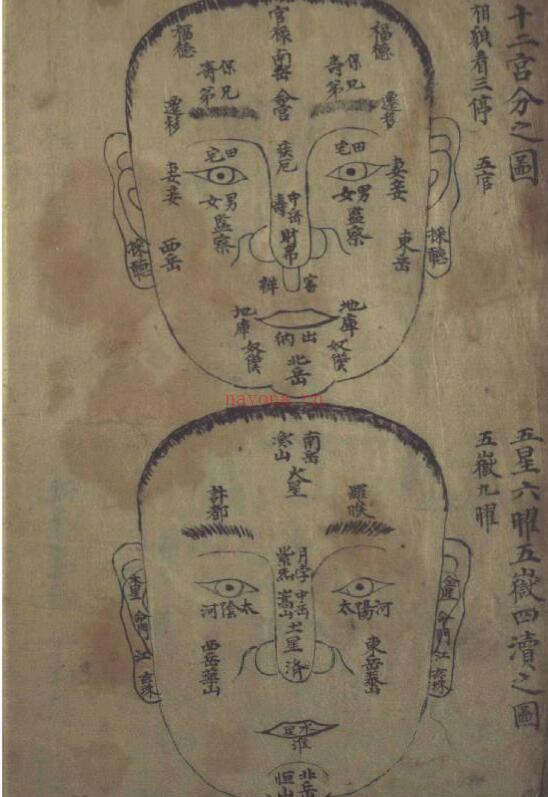 十二宫分之圖
相貌看三停 五官
福德
官祿
南岳
命宫
福德
保壽
兄弟
保壽
兄弟
遷移
遷移
田宅
疾厄
田宅
妻妾
男女
監察
中岳
壽
財帛
男女
監察
妻妾
採聽
西岳
東岳
採聽
審辨
地庫
出納
地庫
奴僕
北岳
奴僕
nayona.cn
五星六曜五嶽四瀆之圖
五嶽九曜
南岳
火星
計都
羅睺
月孛
紫炁
中岳
嵩山
土星
濟
太陰河
太陽河
木星
命門
江
金星
命門
江
西岳華山
東岳泰山
水星
淮
北岳
恒山